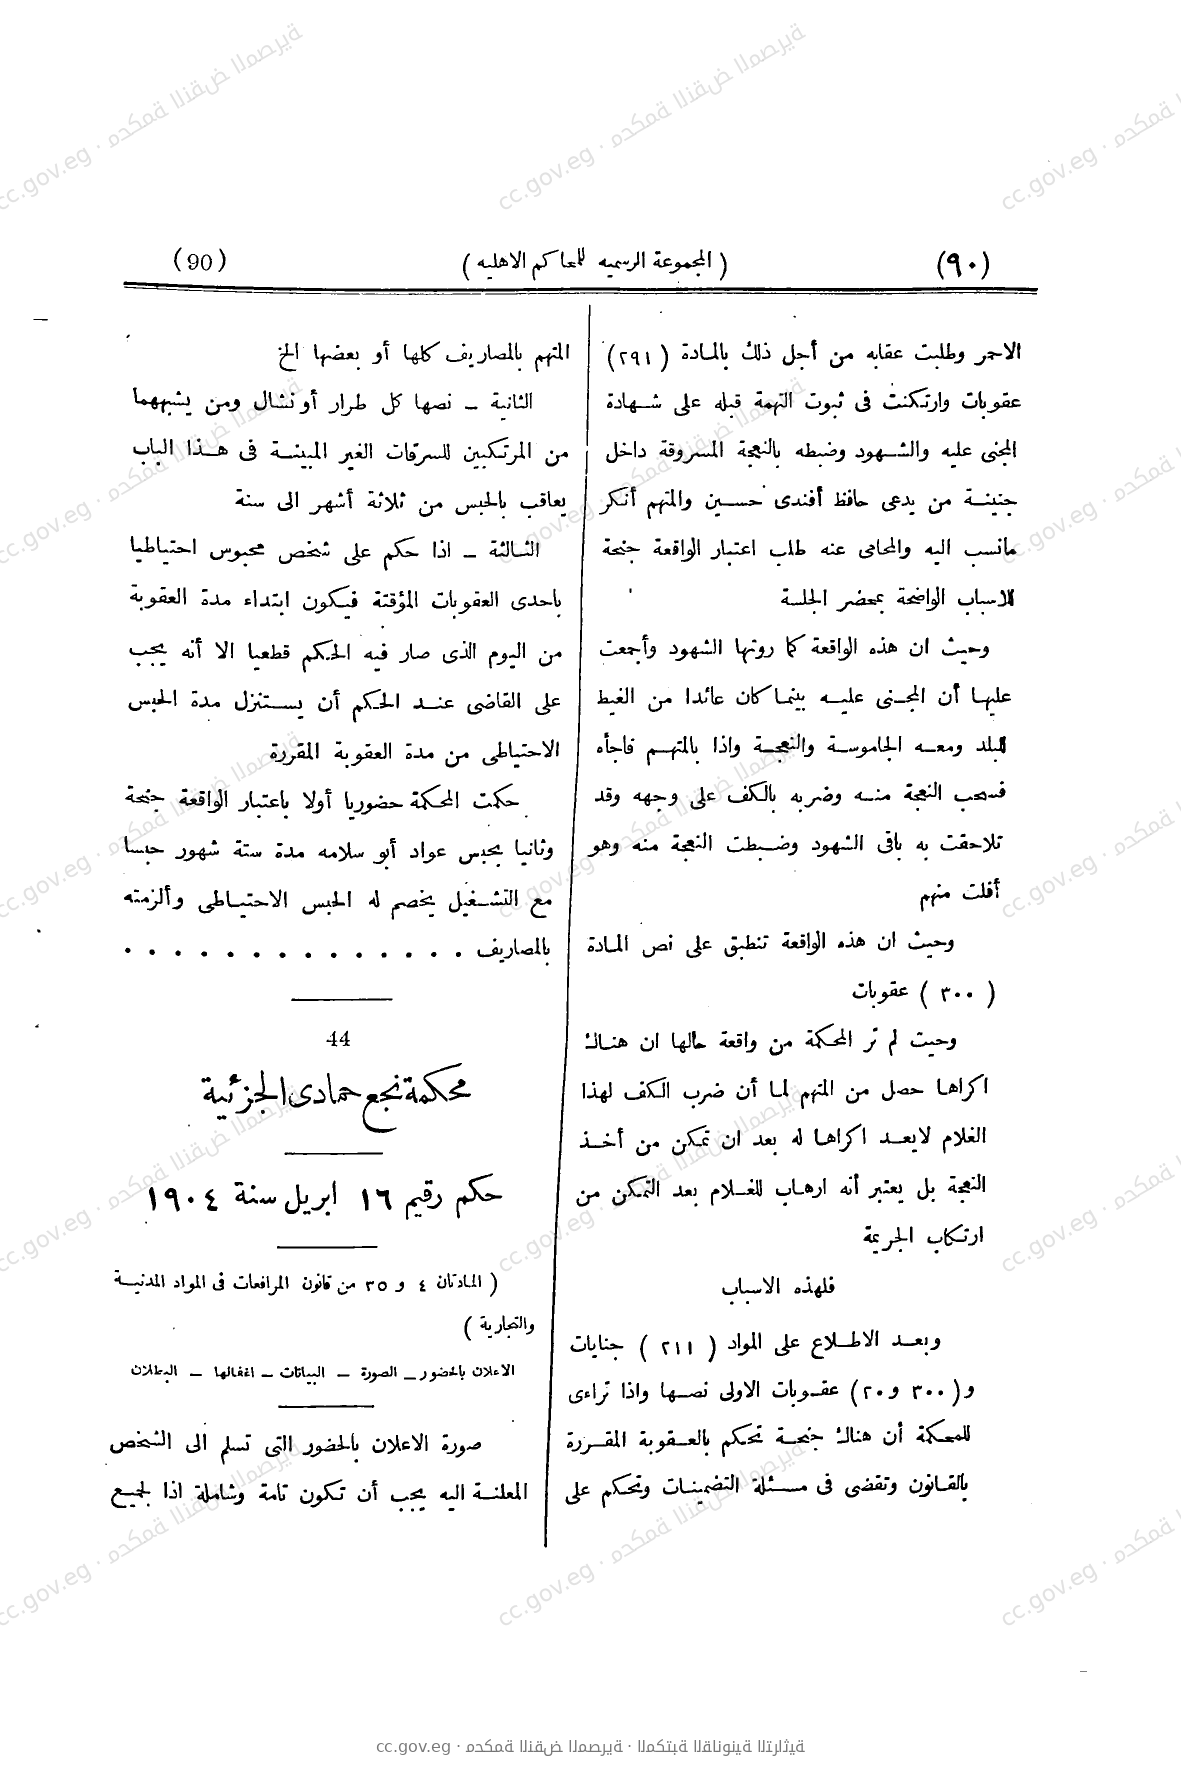 (٩٠)
( المجموعة الرسميه للمحاكم الاهليه )
(90)
الاحمر وطلبت عقابه من أجل ذلك بالمادة ( ٢٩١ )
عقوبات وارتكنت فى ثبوت التهمة قبله على شهادة
المجنى عليه والشهود وضبطه بالنعجة المسروقة داخل
جنينة من يدعى حافظ أفندى حسين والمتهم أنكر
مانسب اليه والمحامى عنه طلب اعتبار الواقعة جنحة
للاسباب الواضحة بمحضر الجلسة
وحيث ان هذه الواقعة كما روتها الشهود وأجمعت
عليها أن المجنى عليه بينما كان عائدا من الغيط
للبلد ومعه الجاموسة والنعجة واذا بالمتهم فاجأه
فسحب النعجة منه وضربه بالكف على وجهه وقد
تلاحقت به باقى الشهود وضبطت النعجة منه وهو
أفلت منهم
وحيث ان هذه الواقعة تنطبق على نص المادة
( ٣٠٠ ) عقوبات
وحيت لم تر المحكمة من واقعة حالها ان هناك
اكراها حصل من المتهم لما أن ضرب الكف لهذا
الغلام لايعد اكراها له بعد ان تمكن من أخذ
النعجة بل يعتبر أنه ارهاب للغلام بعد التمكن من
ارتكاب الجريمة
فلهذه الاسباب
وبعد الاطلاع على المواد ( ٢١١ ) جنايات
و( ٣٠٠ و ٢٠ ) عقوبات الاولى نصها واذا تراءى
للمحكمة أن هناك جنحة تحكم بالعقوبة المقررة
بالقانون وتقضى فى مسئلة التضمينات وتحكم على
المتهم بالمصاريف كلها أو بعضها الخ
الثانية – نصها كل طرار أو نشال ومن يشبههما
من المرتكبين للسرقات الغير المبينة فى هذا الباب
يعاقب بالحبس من ثلاثة أشهر الى سنة
الثالثة – اذا حكم على شخص محبوس احتياطيا
باحدى العقوبات المؤقتة فيكون ابتداء مدة العقوبة
من اليوم الذى صار فيه الحكم قطعيا الا أنه يجب
على القاضى عند الحكم أن يستنزل مدة الحبس
الاحتياطى من مدة العقوبة المقررة
حكمت المحكمة حضوريا أولا باعتبار الواقعة جنحة
وثانيا بحبس عواد أبو سلامه مدة ستة شهور حبسا
مع التشغيل يخصم له الحبس الاحتياطى وألزمته
بالمصاريف . . . . . . . . . . . . . .
44
محكمة نجع حمادى الجزئية
حكم رقيم ١٦ ابريل سنة ١٩٠٤
( المادتان ٤ و ٣٥ من قانون المرافعات فى المواد المدنية
والتجارية )
الاعلان بالحضور – الصورة – البيانات – اغفالها – البطلان
صورة الاعلان بالحضور التى تسلم الى الشخص
المعلنة اليه يجب أن تكون تامة وشاملة اذا لجميع
cc.gov.eg · محكمة النقض المصرية · المكتبة القانونية التراثية